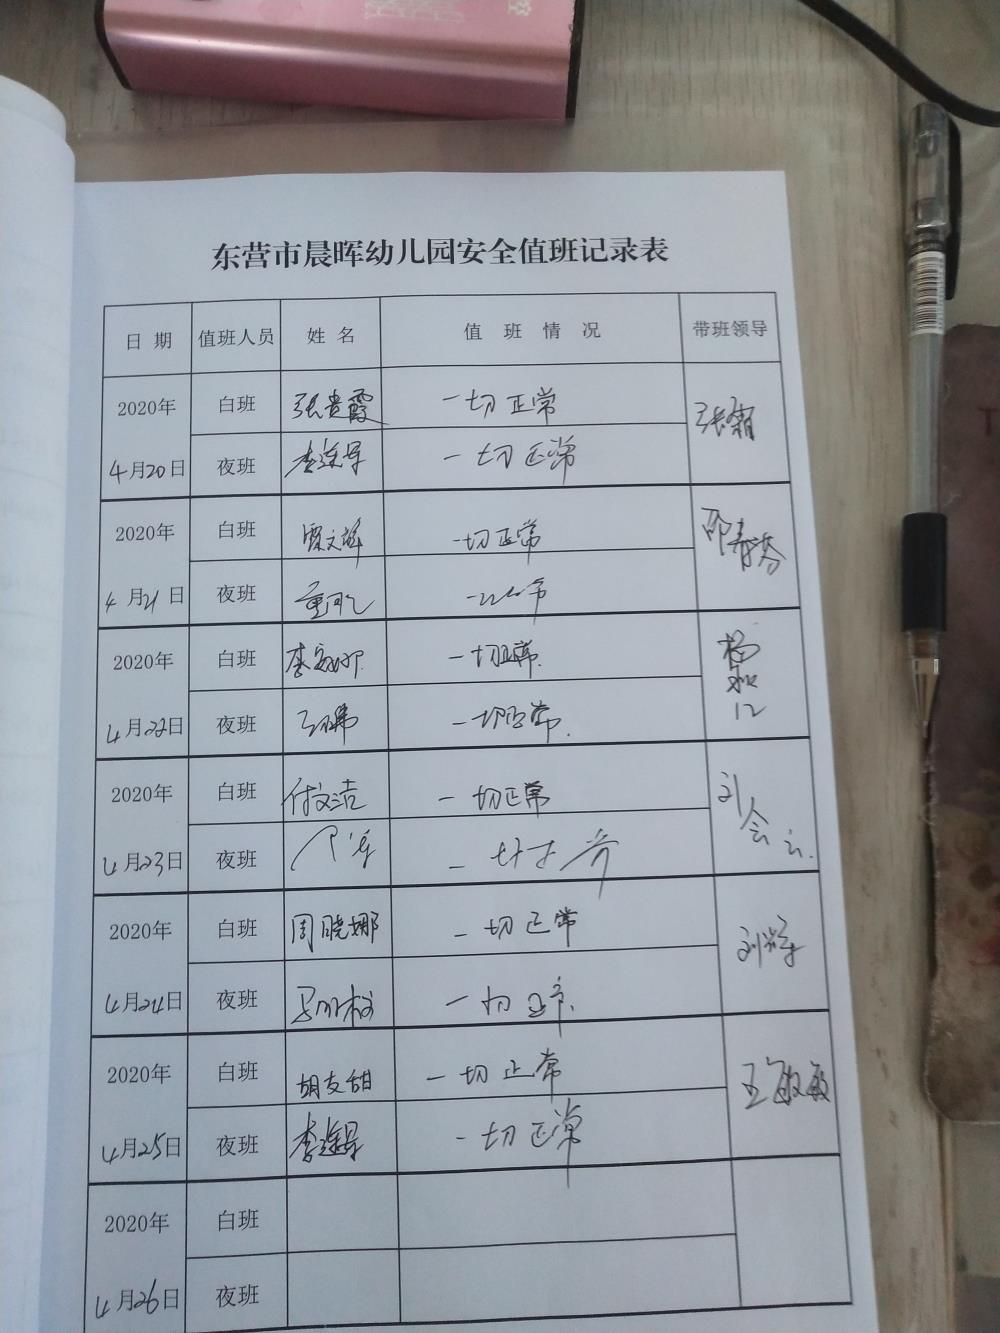 东营市晨晖幼儿园安全值班记录表
日期 值班人员 姓名 值班情况 带班领导
2020年 白班 张贵霞 一切正常 张霜
4月20日 夜班 李连军 一切正常
2020年 白班 贾文峰 一切正常 邵春芬
4月21日 夜班
2020年 白班 李 娜 一切正常 杨
4月22日 夜班 一切正常
2020年 白班 付文洁 一切正常 刘会云
4月23日 夜班 一切正常
2020年 白班 周晓娜 一切正常 刘
4月24日 夜班 一切正常
2020年 白班 胡友甜 一切正常 王敏敏
4月25日 夜班 李连军 一切正常
2020年 白班
4月26日 夜班